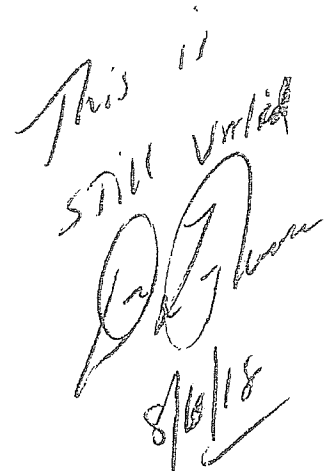 This is
still valid
8/6/18